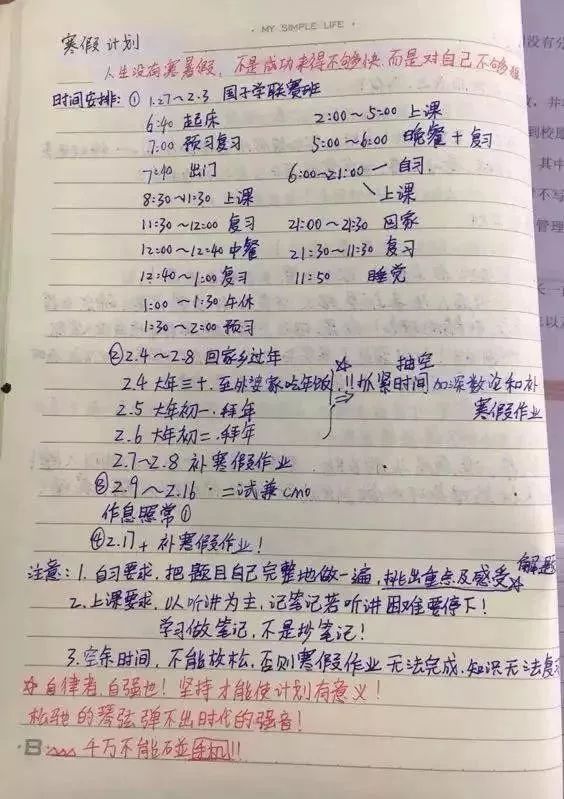 · MY SIMPLE LIFE ·
寒假计划
人生没有寒暑假,不是成功来得不够快 而是对自己不够狠
时间安排:① 1.27~2.3 国子学联赛班
6:40 起床 2:00~5:00 上课
7:00 预习复习 5:00~6:00 晚餐+复习
7:40 出门 6:00~21:00 — 自习
8:30~11:30 上课 上课
11:30~12:00 复习 21:00~21:30 回家
12:00~12:40 中餐 21:30~11:30 复习
12:40~1:00 复习 11:50 睡觉
1:00~1:30 午休
1:30~2:00 预习
② 2.4~2.8 回家乡过年 抽空
2.4 大年三十.至外婆家吃年饭 !!抓紧时间 加深数论和补
2.5 大年初一.拜年 寒假作业
2.6 大年初二.拜年
2.7~2.8 补寒假作业
③ 2.9~2.16 · 二试兼cmo
作息照常①
④ 2.17+ 补寒假作业!
注意:1.自习要求,把题目自己完整地做一遍,挑出重点及感受 解题
2.上课要求,以听讲为主,记笔记若听讲困难要停下!
学习做笔记,不是抄笔记!
3.空余时间,不能放松,否则寒假作业无法完成,知识无法复
☆自律者,自强也!坚持才能使计划有意义!
松驰的琴弦弹不出时代的强音!
千万不能碰手机!!!
没有分
到校
其中
不写
管理